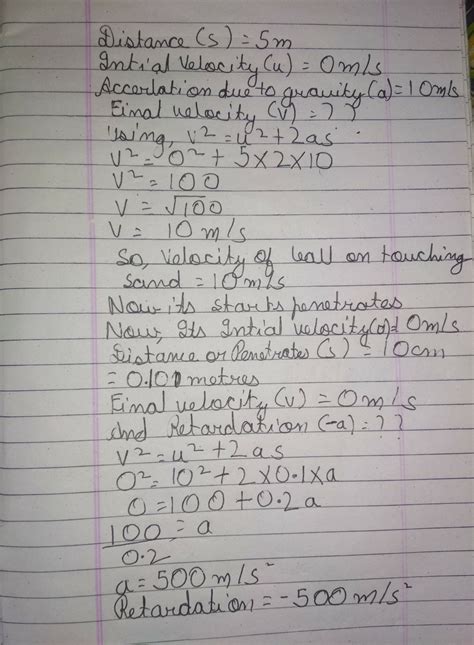 Distance (s) = 5m
Intial velocity (u) = 0 m/s
Accerlation due to gravity (a) = 10 m/s
Final velocity (v) = ? ?
using, v² = u² + 2as
v² = 0² + 5×2×10
v² = 100
v = √100
v = 10 m/s
So, velocity of ball on touching
sand = 10 m/s
Now its starts penetrates
Now, Its Intial velocity(u)=10m/s
Distance or Penetrates (s) = 10cm
= 0.101 metres
Final velocity (v) = 0 m/s
And Retardation (-a) = ? ?
v² = u² + 2as
0² = 10² + 2 × 0.1 × a
0 = 100 + 0.2 a
100 = a
0.2
a = 500 m/s²
Retardation = -500 m/s²